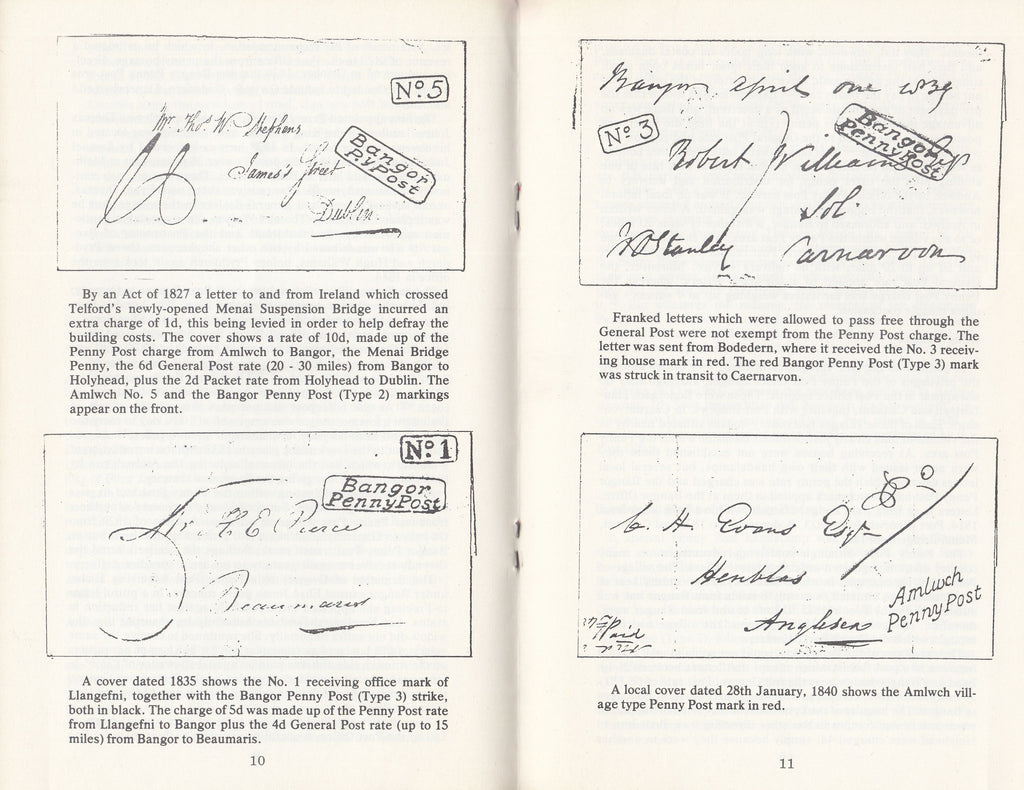 Nº 5
Mr Thos. W. Stephens
Bangor
P.yPost
James's Street
Dublin.
By an Act of 1827 a letter to and from Ireland which crossed
Telford's newly-opened Menai Suspension Bridge incurred an
extra charge of 1d, this being levied in order to help defray the
building costs. The cover shows a rate of 10d, made up of the
Penny Post charge from Amlwch to Bangor, the Menai Bridge
Penny, the 6d General Post rate (20 - 30 miles) from Bangor to
Holyhead, plus the 2d Packet rate from Holyhead to Dublin. The
Amlwch No. 5 and the Bangor Penny Post (Type 2) markings
appear on the front.
Nº 1
Bangor
PennyPost
Beaumaris
A cover dated 1835 shows the No. 1 receiving office mark of
Llangefni, together with the Bangor Penny Post (Type 3) strike,
both in black. The charge of 5d was made up of the Penny Post rate
from Llangefni to Bangor plus the 4d General Post rate (up to 15
miles) from Bangor to Beaumaris.
10
Bangor april one
Nº 3
Bangor
PennyPost
Robert Williams
Sol.
WOStanley
Carnarvon
Franked letters which were allowed to pass free through the
General Post were not exempt from the Penny Post charge. The
letter was sent from Bodedern, where it received the No. 3 receiv-
ing house mark in red. The red Bangor Penny Post (Type 3) mark
was struck in transit to Caernarvon.
C. H. Evans Esqr
Henblas
Anglesea
Amlwch
PennyPost
Paid
A local cover dated 28th January, 1840 shows the Amlwch vill-
age type Penny Post mark in red.
11